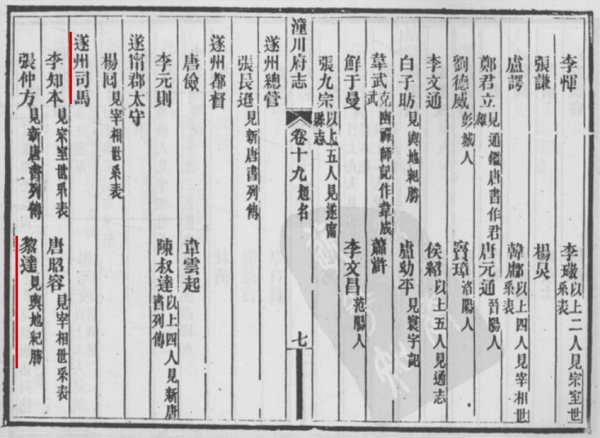 李惲 李璥以上二人見宗室世系表
張謙 楊炅
盧諤 韓郿以上四人見宰相世系表
鄭君立見通鑑唐書作君雄 唐元通晉陽人
劉德威彭城人 竇璋洛陽人
李文通 侯紹以上五人見通志
白子昉見輿地紀勝 盧幼平見寰宇記
韋武克幽禪師記作韋成武 蕭滸
鮮于曼 李文昌范陽人
張九宗以上五人見遂甯縣志
潼川府志 卷十九 題名 七
遂州總管
張長遜見新唐書列傳
遂州都督
唐儉 韋雲起
李元則 陳叔達以上四人見新唐書列傳
遂甯郡太守
楊冏見宰相世系表
遂州司馬
李知本見宗室世系表 唐昭容見宰相世系表
張仲方見新唐書列傳 黎達見輿地紀勝